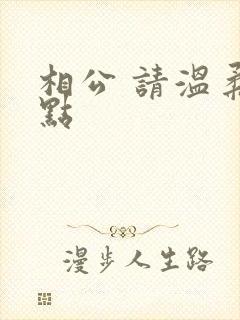 相公 請溫柔
點
漫步人生路